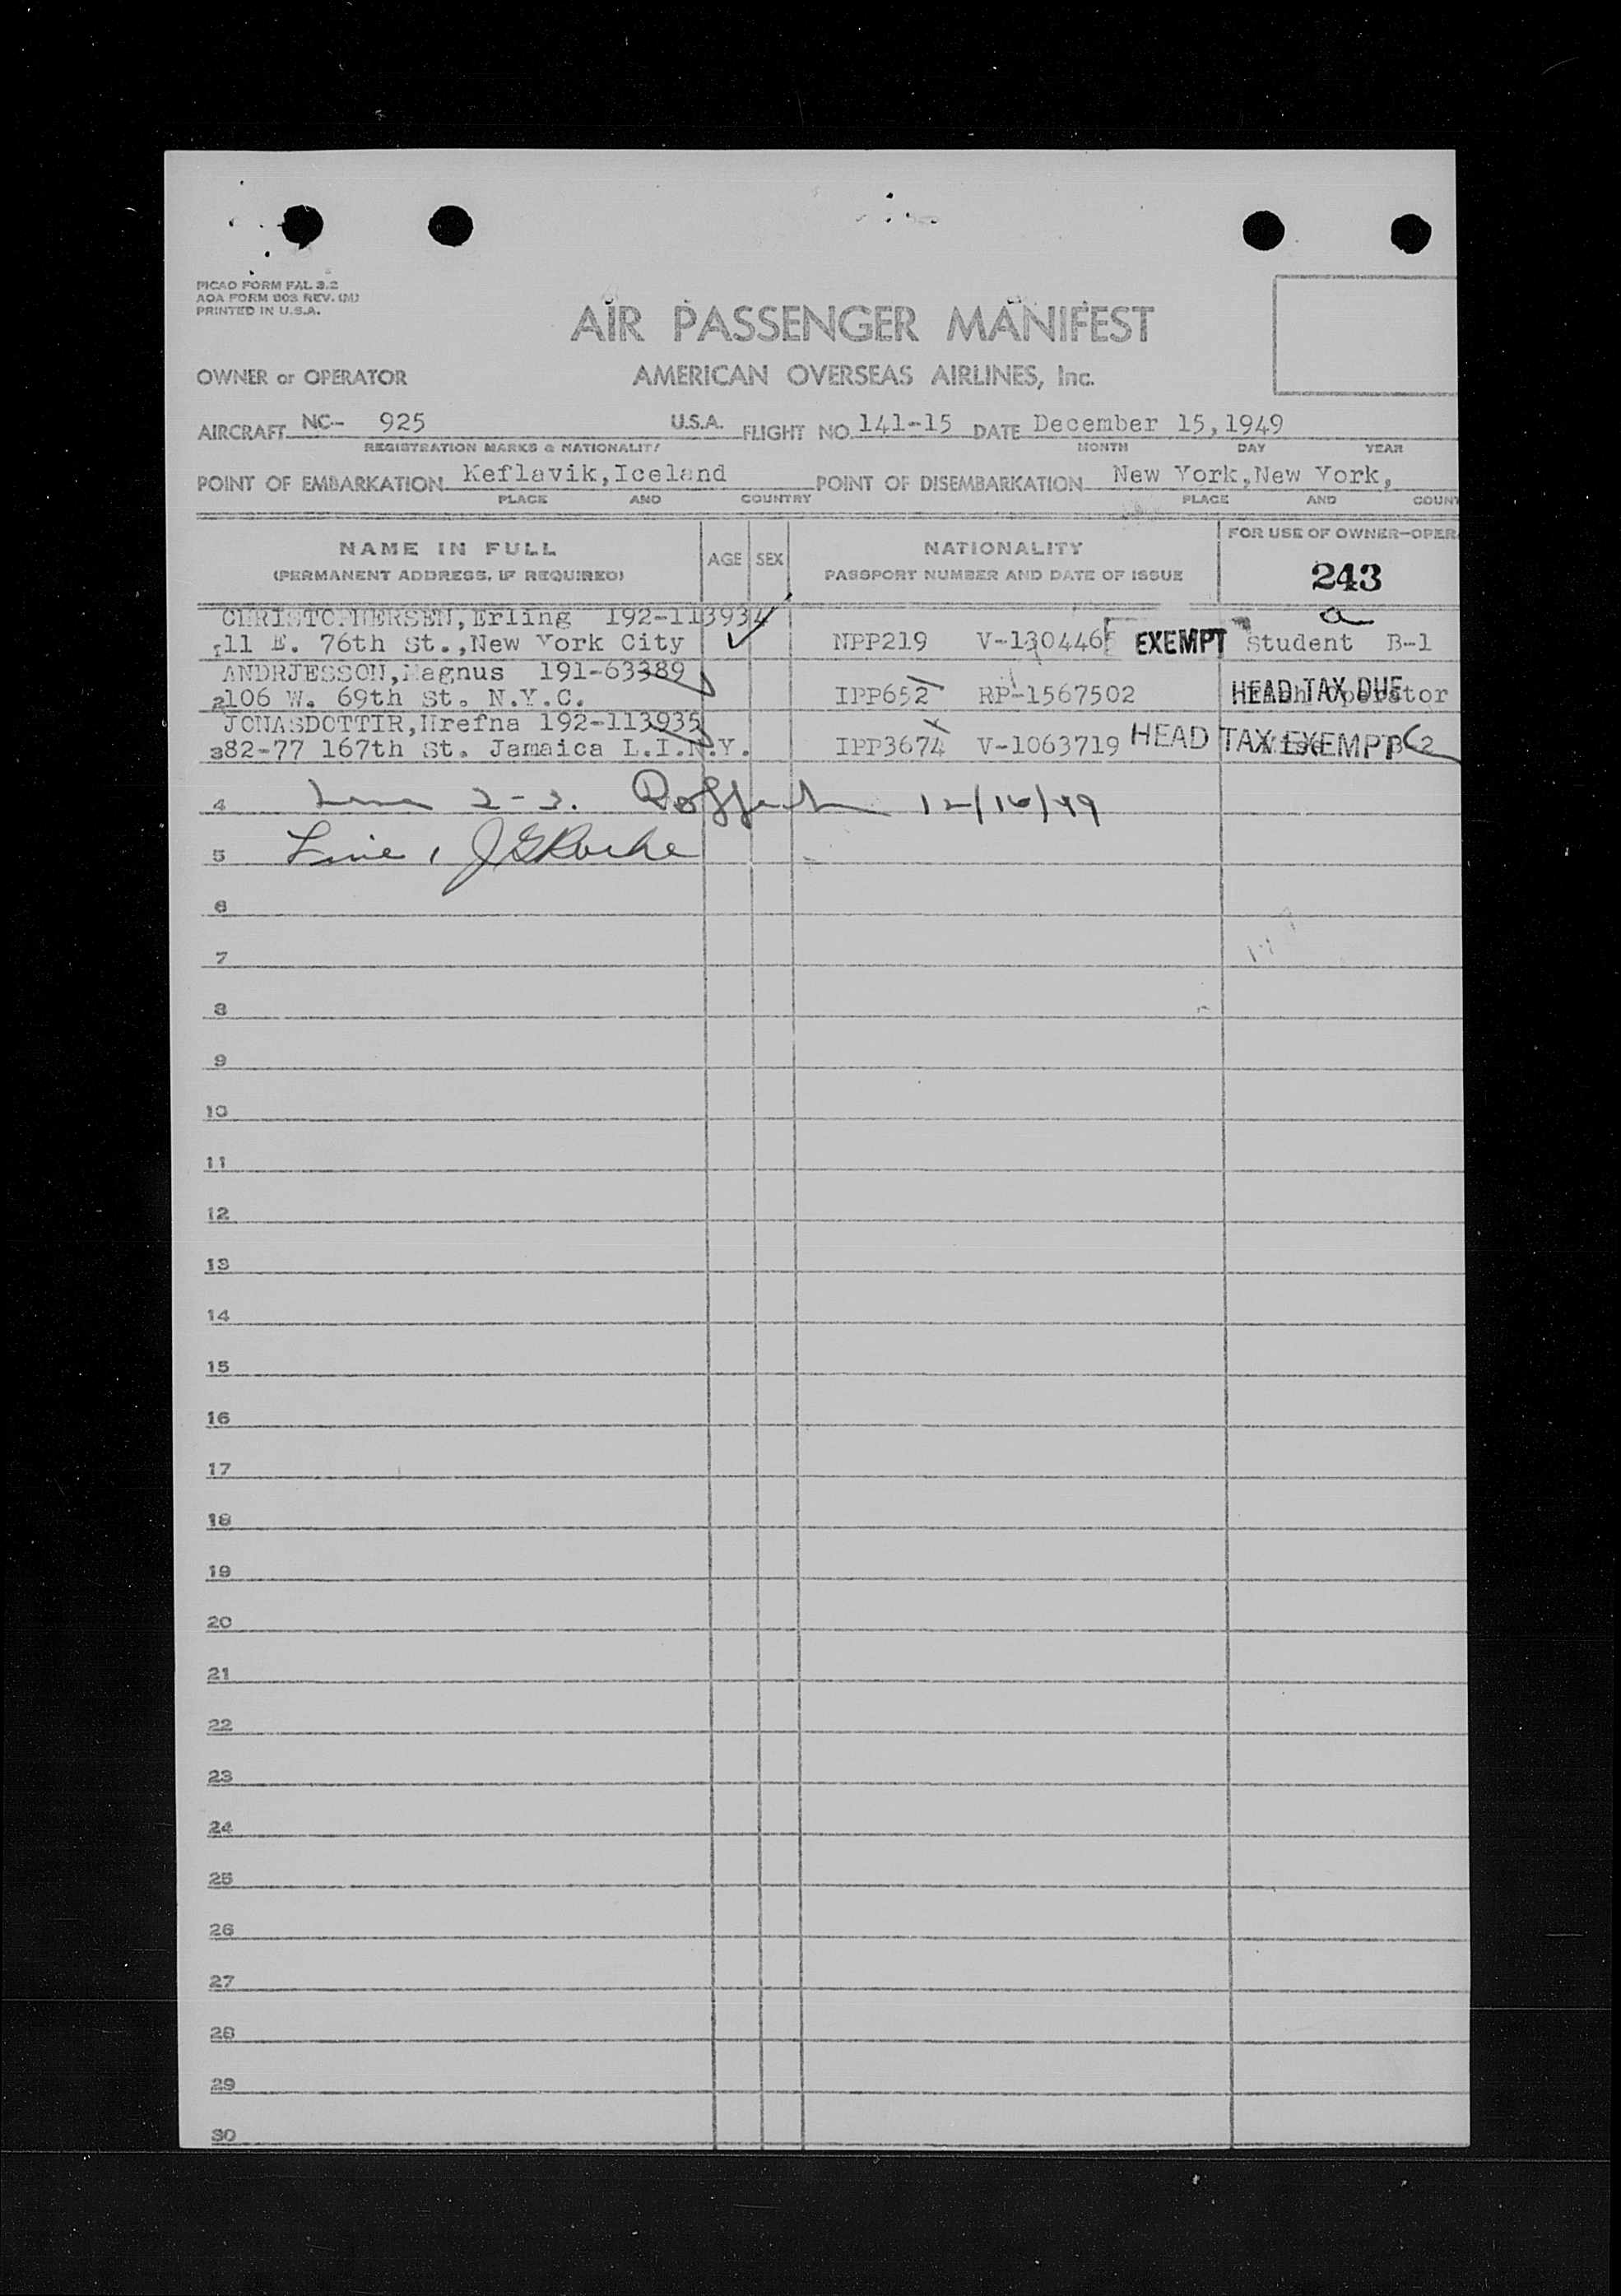 PICAO FORM FAL 3.2
AOA FORM 003 REV. (M)
PRINTED IN U.S.A.
AIR PASSENGER MANIFEST
OWNER or OPERATOR AMERICAN OVERSEAS AIRLINES, Inc.
AIRCRAFT NC- 925 U.S.A. FLIGHT NO. 141-15 DATE December 15,1949
REGISTRATION MARKS & NATIONALITY MONTH DAY YEAR
POINT OF EMBARKATION Keflavik,Iceland POINT OF DISEMBARKATION New York,New York,
PLACE AND COUNTRY PLACE AND COUN
NAME IN FULL AGE SEX NATIONALITY FOR USE OF OWNER-OPER
(PERMANENT ADDRESS, IF REQUIRED) PASSPORT NUMBER AND DATE OF ISSUE 243
CHRISTOPHERSEN,Erling 192-113934 a
1 11 E. 76th St.,New York City NPP219 EXEMPT Student B-1
ANDRJESSON,Magnus 191-63389
2 106 W. 69th St. N.Y.C. IPP652 RP-1567502 HEAD TAX DUE
JONASDOTTIR,Hrefna 192-113935
3 82-77 167th St. Jamaica L.I.N.Y. IPP3674 V-1063719 HEAD TAX EXEMPT
4 2-3. 12/16/49
5 Line 1 J G Roche
6
7
8
9
10
11
12
13
14
15
16
17
18
19
20
21
22
23
24
25
26
27
28
29
30